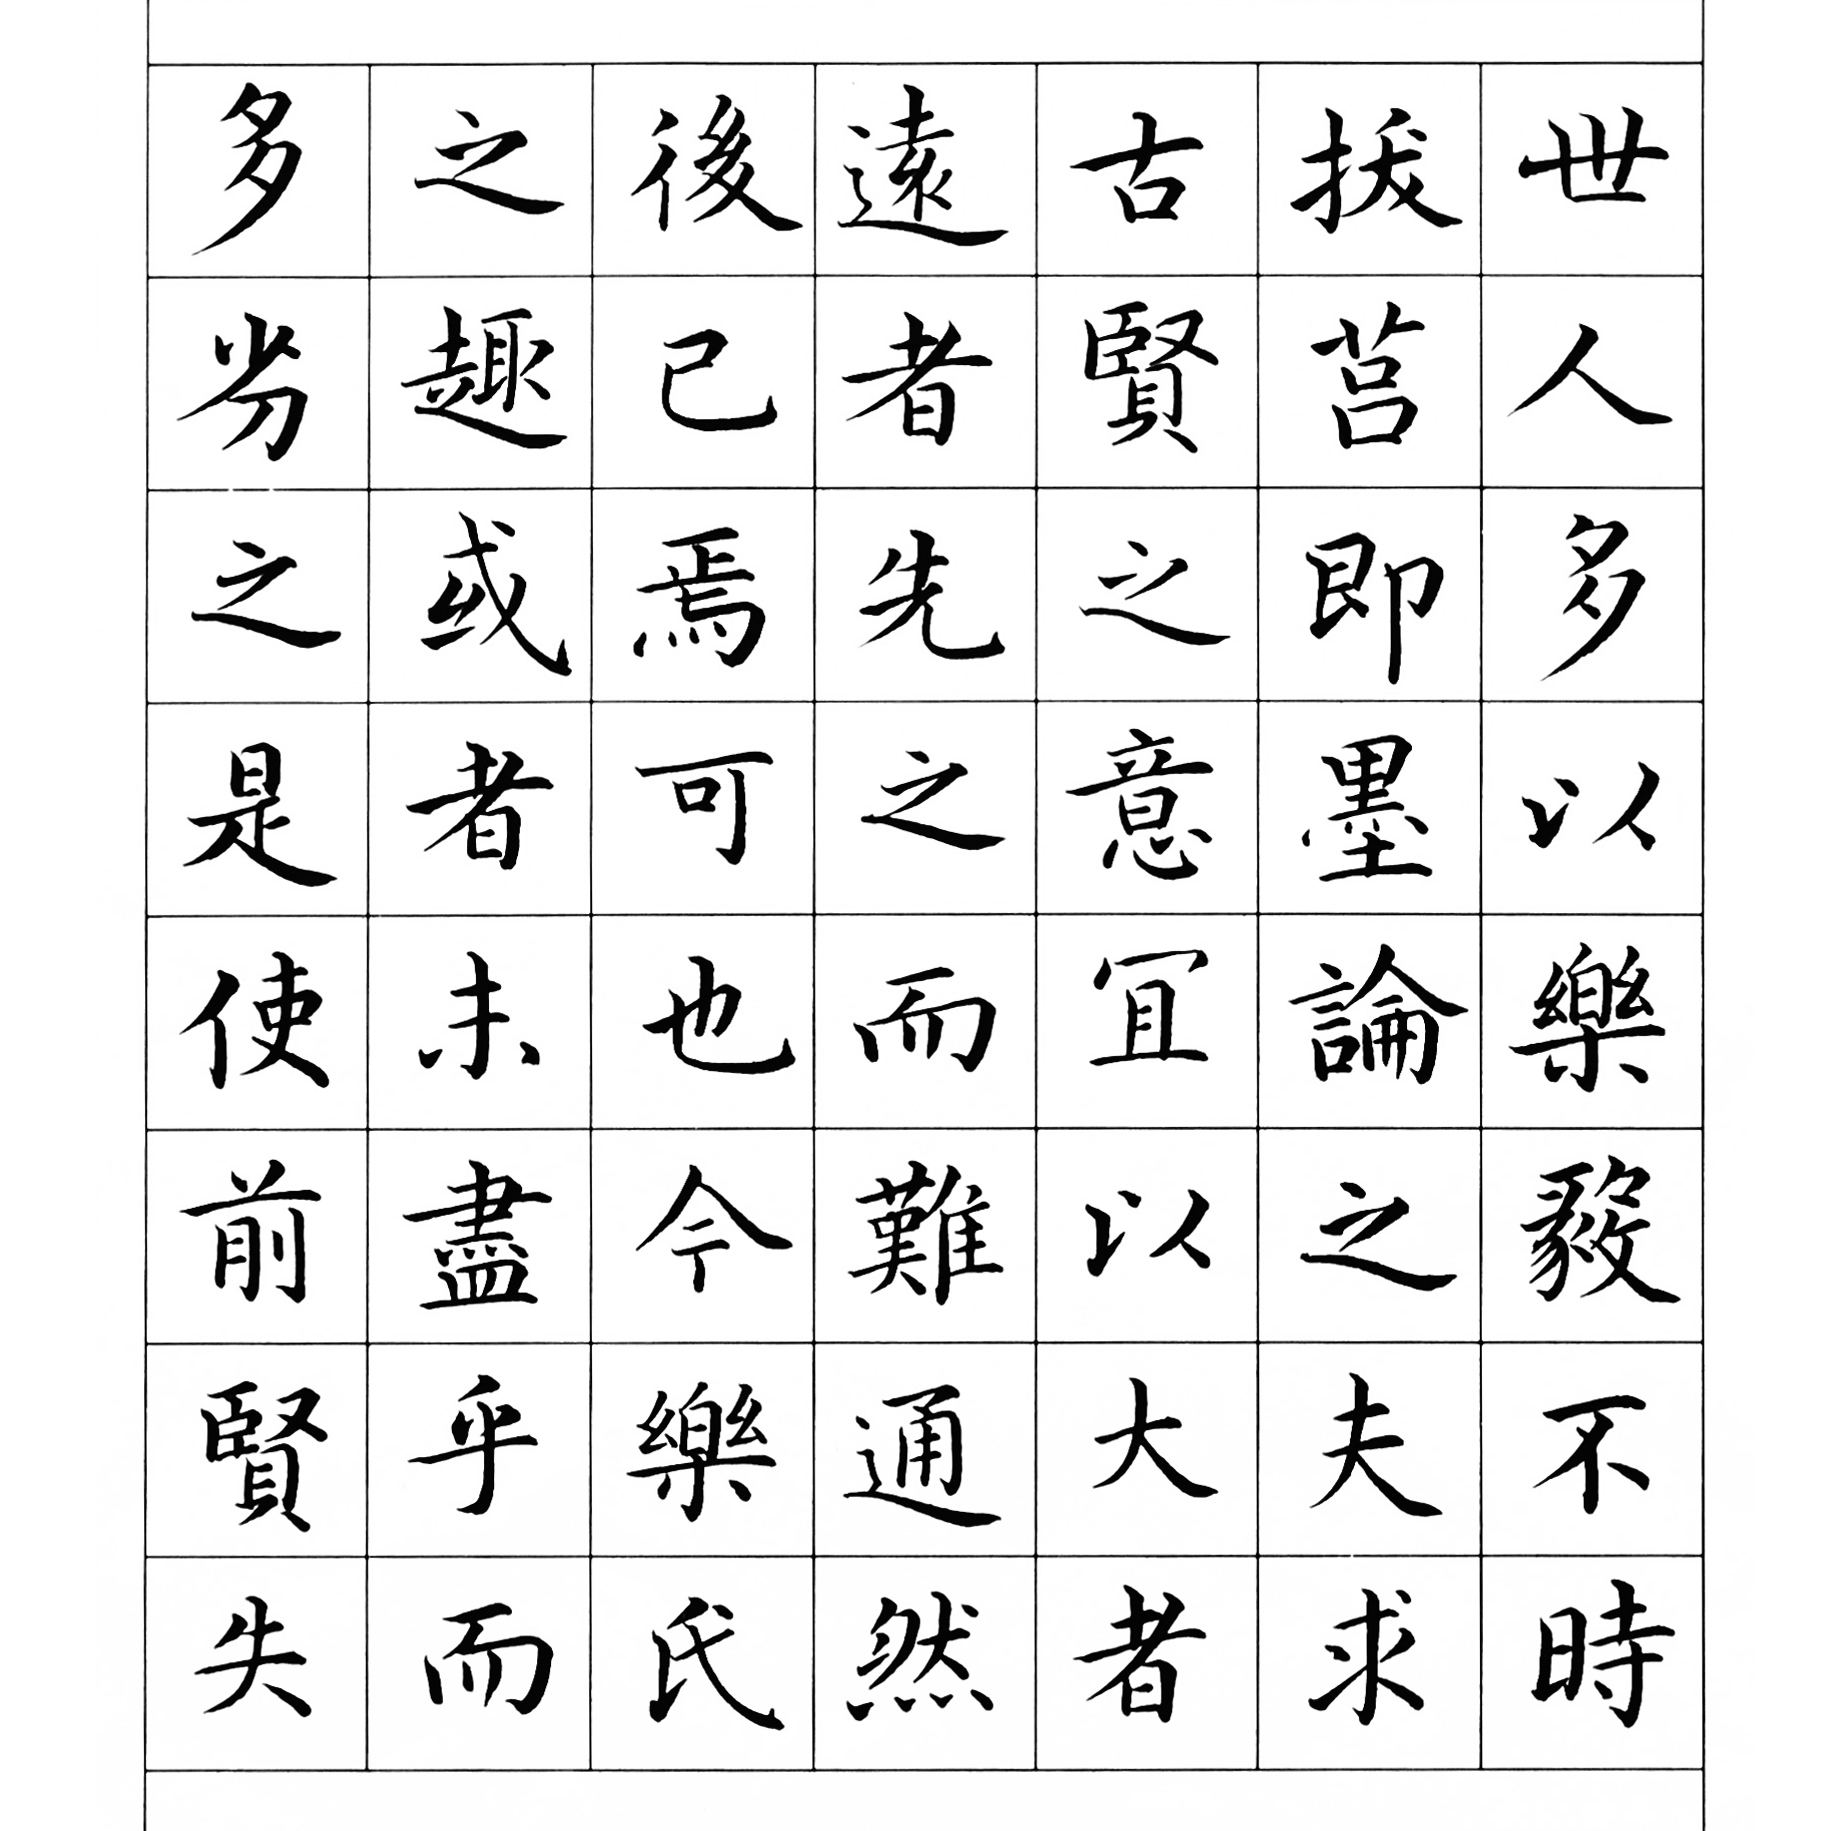 世人多以樂毅不時
拔莒即墨論之夫求
古賢之意冝以大者
遠者先之而難通然
後已焉可也今樂氏
之趣或者未盡乎而
多劣之是使前賢失